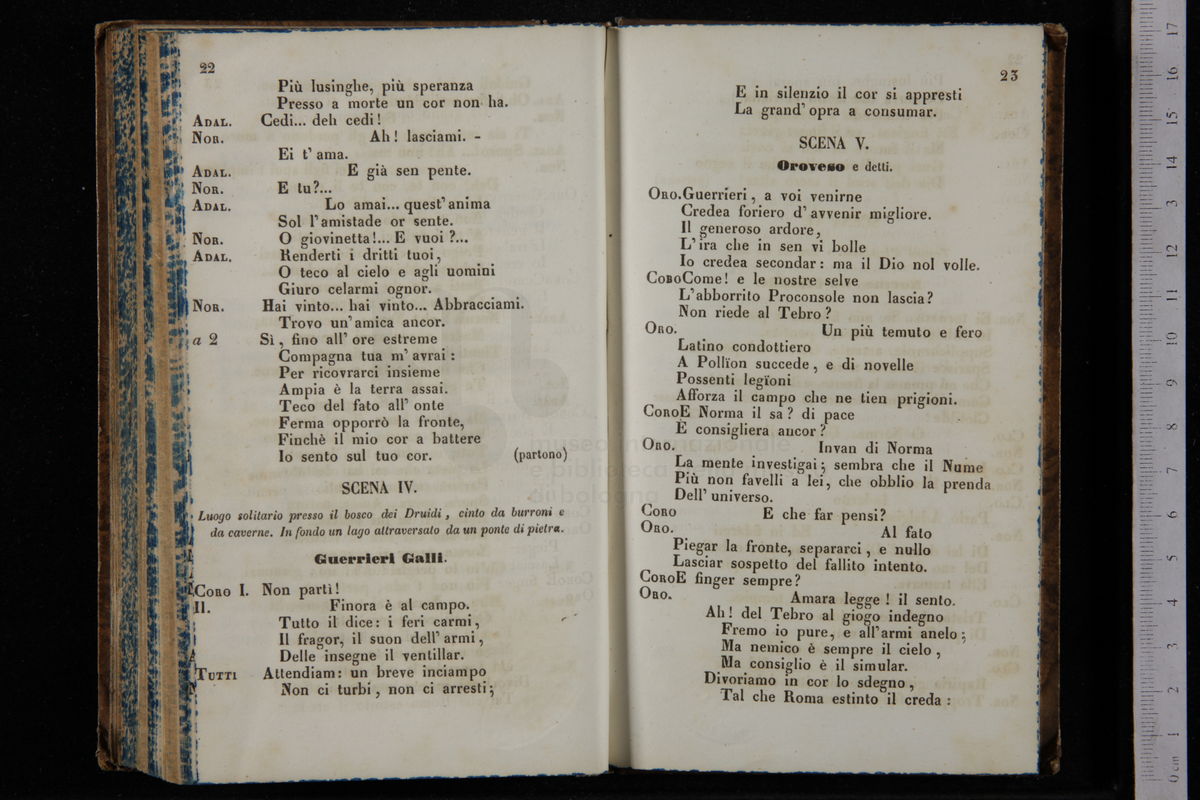 22
Più lusinghe, più speranza
Presso a morte un cor non ha.
ADAL. Cedi... deh cedi!
NOR. Ah! lasciami. -
Ei t' ama.
ADAL. E già sen pente.
NOR. E tu?...
ADAL. Lo amai... quest' anima
Sol l' amistade or sente.
NOR. O giovinetta!... E vuoi ?...
ADAL. Renderti i dritti tuoi,
O teco al cielo e agli uomini
Giuro celarmi ognor.
NOR. Hai vinto... hai vinto... Abbracciami.
Trovo un' amica ancor.
a 2 Sì, fino all' ore estreme
Compagna tua m' avrai :
Per ricovrarci insieme
Ampia è la terra assai.
Teco del fato all' onte
Ferma opporrò la fronte,
Finchè il mio cor a battere
Io sento sul tuo cor. (partono)
SCENA IV.
Luogo solitario presso il bosco dei Druidi, cinto da burroni e
da caverne. In fondo un lago attraversato da un ponte di pietra.
Guerrieri Galli.
CORO I. Non partì!
II. Finora è al campo.
Tutto il dice: i feri carmi,
Il fragor, il suon dell' armi,
Delle insegne il ventillar.
TUTTI Attendiam: un breve inciampo
Non ci turbi, non ci arresti;
23
E in silenzio il cor si appresti
La grand' opra a consumar.
SCENA V.
Oroveso e detti.
ORO. Guerrieri, a voi venirne
Credea foriero d' avvenir migliore.
Il generoso ardore,
L' ira che in sen vi bolle
Io credea secondar: ma il Dio nol volle.
CORO Come! e le nostre selve
L' abborrito Proconsole non lascia?
Non riede al Tebro?
ORO. Un più temuto e fero
Latino condottiero
A Pollïon succede, e di novelle
Possenti legïoni
Afforza il campo che ne tien prigioni.
CORO E Norma il sa? di pace
E consigliera ancor?
ORO. Invan di Norma
La mente investigai; sembra che il Nume
Più non favelli a lei, che obblio la prenda
Dell' universo.
CORO E che far pensi?
ORO. Al fato
Piegar la fronte, separarci, e nullo
Lasciar sospetto del fallito intento.
CORO E finger sempre?
ORO. Amara legge! il sento.
Ah! del Tebro al giogo indegno
Fremo io pure, e all' armi anelo;
Ma nemico è sempre il cielo,
Ma consiglio è il simular.
Divoriamo in cor lo sdegno,
Tal che Roma estinto il creda :